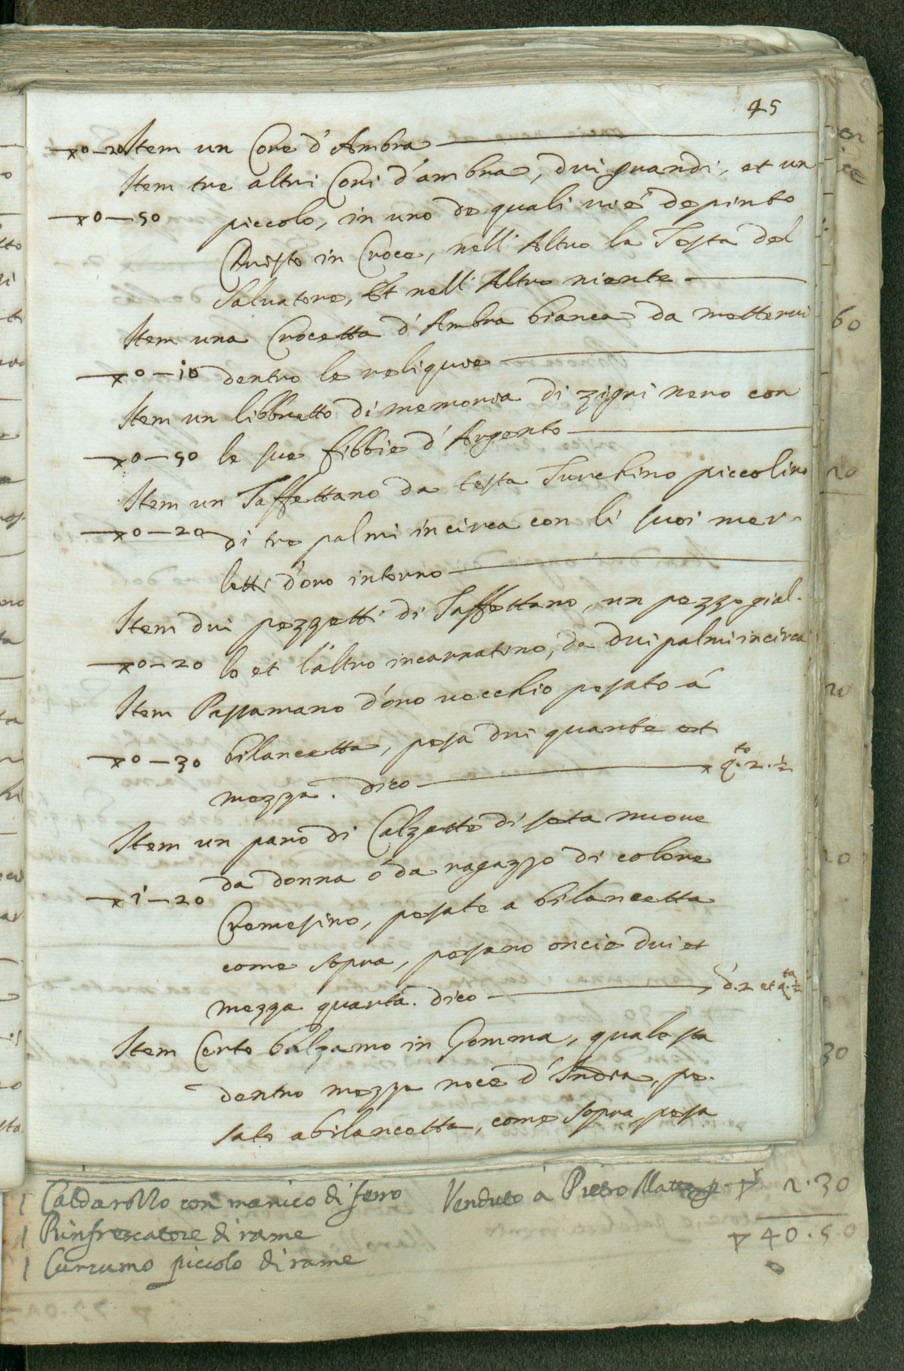 45
x 0 – 20 Item un Core d'Ambra
Item tre altri Cori d'ambra, dui grandi, et un
x 0 – 50 piccolo, in uno de quali vi è depinto
Christo in Croce, nell'Altro la Testa del
Salvatore, Et nell'Altro niente
Item una Crocetta d'Ambra bianca da mettervi
x 0 – 10 dentro le reliquie
Item un libbretto di memoria di zigri nero con
x 0 – 50 le sue fibbie d'Argento
Item un Taffettano da testa Turchino piccolino
x 0 – 20 di tre palmi incirca con li suoi mer-
letti d'oro intorno
Item dui pezzetti di Taffettano, un pezzo gial-
x 0 – 20 lo et l'altro incarnatino, da dui palmi incirca
Item Passamano d'oro vecchio pesato á
x 0 – 30 bilancetta, pesa dui quarte et
mezza. dico x q.te 2.½
Item un paro di Calzette di seta nuove
x 1 – 20 da donna ó da ragazzo di colore
Cremesino, pesate a bilancetta
come sopra, pesano oncie dui et
mezza quarta. dico 2 et q.ta ½
Item Certo balzamo in Gomma, quale sta
dentro mezza noce d'India, pe-
sato a bilancetta, come sopra, pesa
1 Caldarozzo con manico di ferro Venduto á Pietro 2.30
1 Rinfrescatore di rame 40.50
1 Cuccumo piccolo di rame
60
20
20
20
30